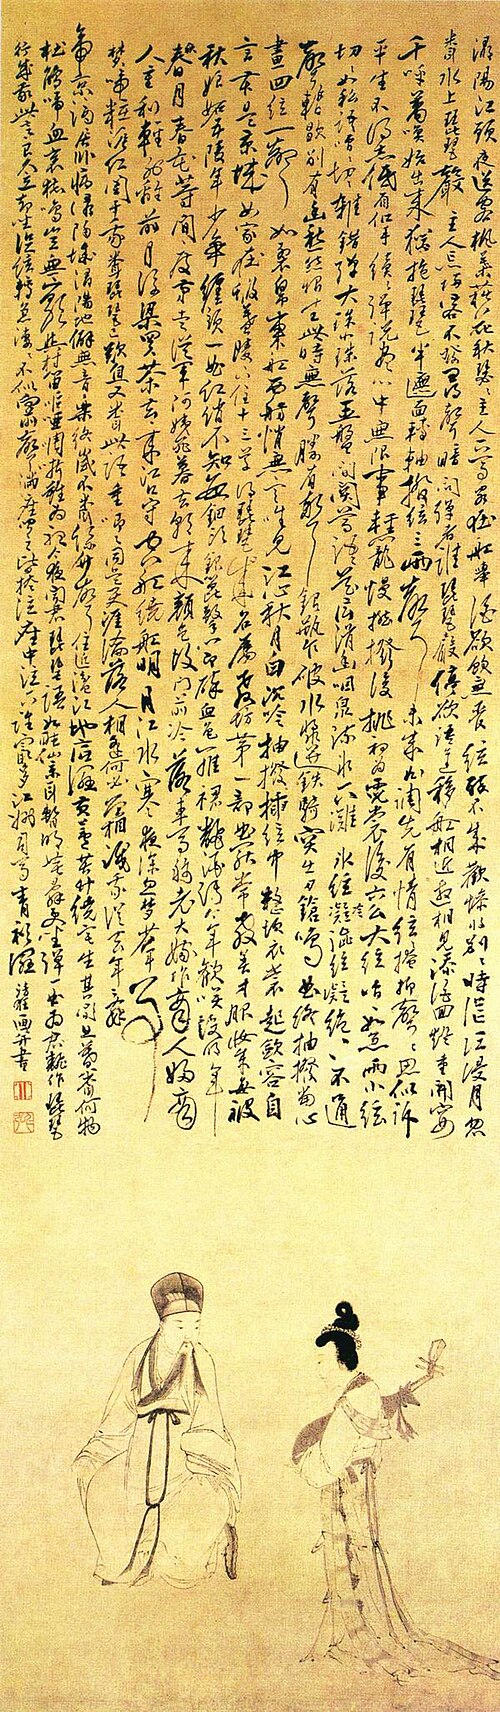 潯陽江頭夜送客楓葉荻花秋瑟瑟主人下馬客在船舉酒欲飲無管絃醉不成歡慘將別別時茫茫江浸月忽
聞水上琵琶聲主人忘歸客不發尋聲暗問彈者誰琵琶聲停欲語遲移船相近邀相見添酒回燈重開宴
千呼萬喚始出來猶抱琵琶半遮面轉軸撥絃三兩聲未成曲調先有情絃絃掩抑聲聲思似訴
平生不得志低眉信手續續彈說盡心中無限事輕攏慢撚撥復挑初為霓裳後六么大絃嘈嘈如急雨小絃
切切如私語嘈嘈切切錯雜彈大珠小珠落玉盤間關鶯語花底滑幽咽泉流水下灘水絃冷澀絃凝絕凝絕不通
聲暫歇別有幽愁暗恨生此時無聲勝有聲銀瓶乍破水漿迸鐵騎突出刀鎗鳴曲終抽撥當心
畫四絃一聲如裂帛東船西舫悄無言唯見江心秋月白沉吟抽撥插絃中整頓衣裳起斂容自
言本是京城女家在蝦蟇陵下住十三學得琵琶成名屬教坊第一部曲罷常教善才服妝成每被
秋娘妬五陵年少爭纏頭一曲紅綃不知數鈿頭銀篦擊節碎血色羅裙翻酒污今年歡笑復明年
秋月春風等閒度弟走從軍阿姨死暮去朝來顏色故門前冷落車馬稀老大嫁作商人婦商
人重利輕別離前月浮梁買茶去去來江口守空船繞船明月江水寒夜深忽夢少年事
夢啼粧淚紅闌干我聞琵琶已歎息又聞此語重唧唧同是天涯淪落人相逢何必曾相識我從去年辭
帝京謫居臥病潯陽城潯陽地僻無音樂終歲不聞絲竹聲住近湓江地低濕黃蘆苦竹繞宅生其間旦暮聞何物
杜鵑啼血哀猿鳴豈無山歌與村笛嘔啞嘲哳難為聽今夜聞君琵琶語如聽仙樂耳暫明莫辭更坐彈一曲為君翻作琵琶
行感我此言良久立却坐促絃絃轉急淒淒不似向前聲滿座聞之皆掩泣座中泣下誰最多江州司馬青衫濕
清狂畫并書